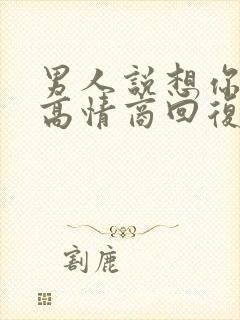 男人說想你
高情商回復
割鹿